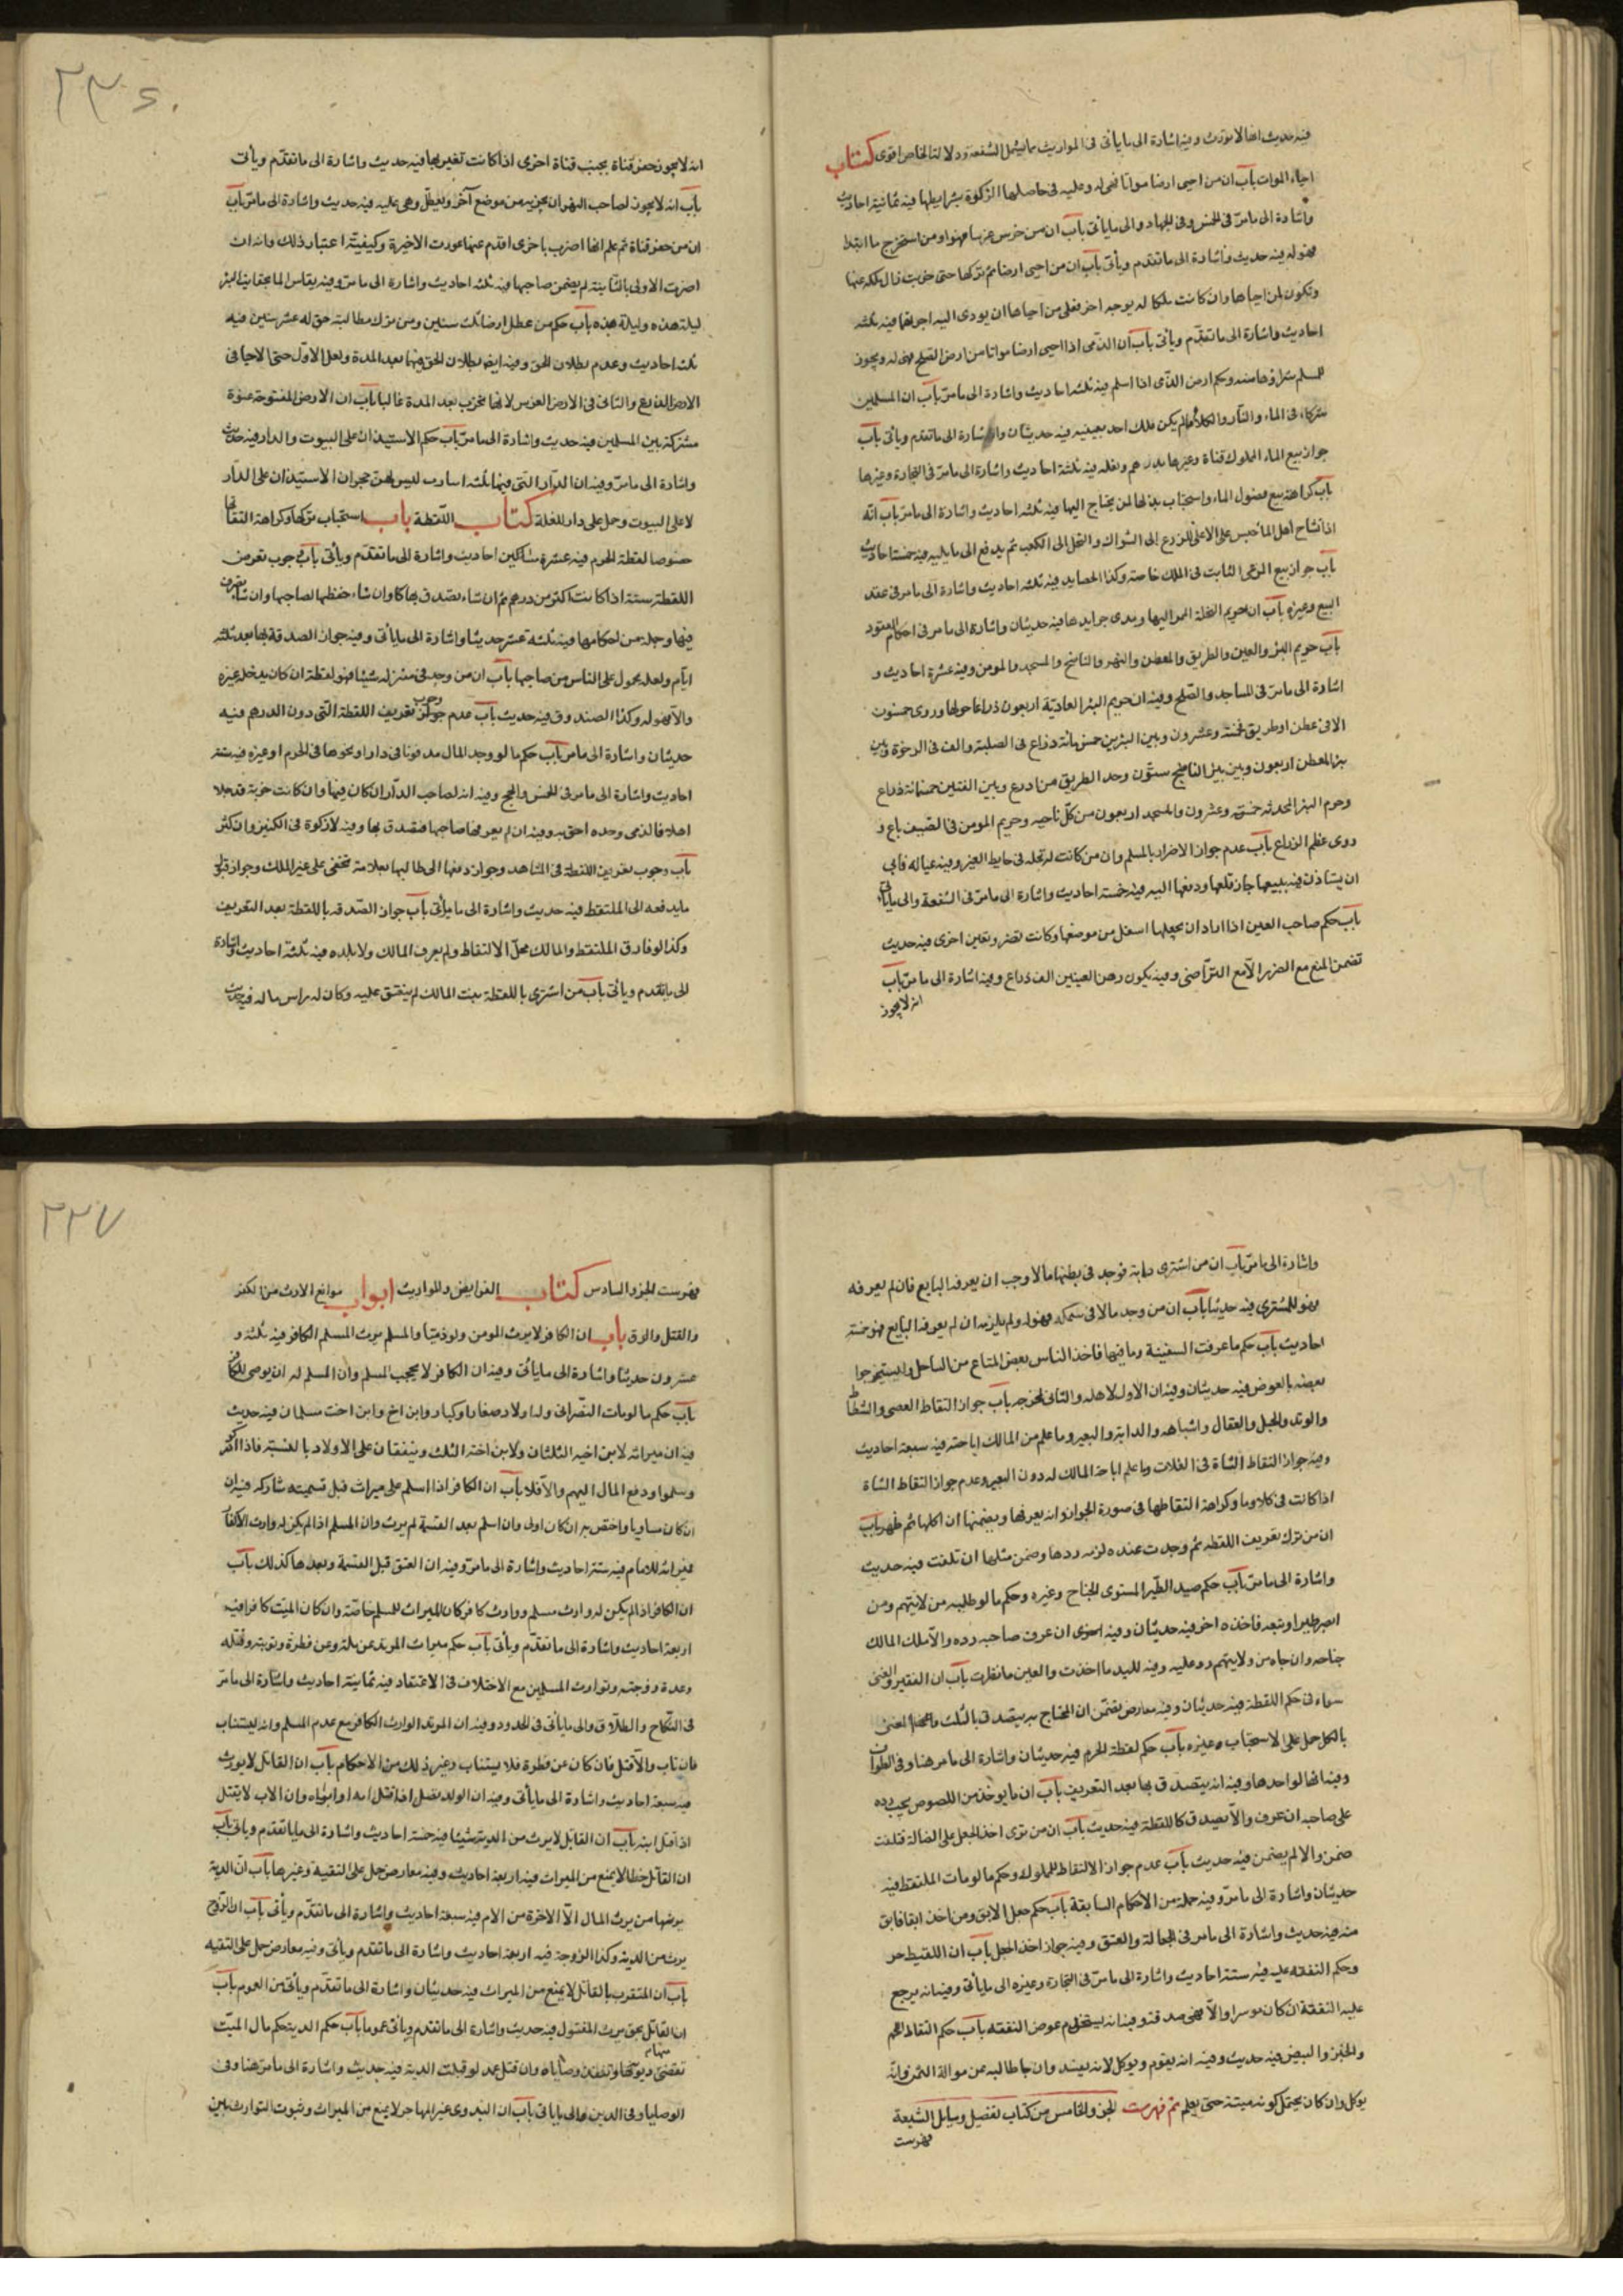 فيه حديث انها لا تورث وفيه اشارة الى ما ياتى فى المواريث مما يشمل الشفعة ودلالة الخاص اقوى كتاب
احياء الموات باب ان من احيى ارضا مواتا فهى له وعليه فى حاصلها الزكوة بشرايطها فيه ثمانية احاديث
واشارة الى ما مرّ فى الخمس وفى الجهاد والى ما يأتى باب ان من غرس غرسا فهو له ومن استخرج ماء ابتداء
فهو له فيه حديث واشارة الى ما تقدم ويأتى باب ان من احيى ارضا ثم تركها حتى خربت زال ملكه عنها
وتكون لمن احياها وان كانت ملكا له بوجه اخر فعلى من احياها ان يودى اليه اجرتها فيه ثلثه
احاديث واشارة الى ما تقدّم ويأتى باب ان الذمى اذا احيى ارضا مواتا من ارض الصلح فهى له ويجوز
للمسلم شراؤها منه وحكم ارض الذمى اذا اسلم فيه ثلثه احاديث واشارة الى ما مرّ باب ان المسلمين
شركاء فى الماء والنار والكلاء ما لم يكن ملك احد بعينه فيه حديثان واشارة الى ما تقدم ويأتى باب
جواز بيع الماء المملوك قناة وغيرها بدرهم وبغلة فيه ثلثة احاديث واشارة الى ما مرّ فى التجارة وغيرها
باب كراهة بيع فضول الماء واستحباب بذلها لمن يحتاج اليها فيه ثلثه احاديث واشارة الى ما مرّ باب انّه
اذا تشاح اهل الماء حبس على الاعلى للزرع الى الشراك والنخل الى الكعب ثم يدفع الى ما يليه فيه خمسة احاديث
باب جواز بيع المرعى النابت فى الملك خاصة وكذا الحصايد فيه ثلثه احاديث واشارة الى ما مر فى عقد
البيع وغيره باب ان حريم النخلة الممر اليها ومدى جرايدها فيه حديثان واشارة الى ما مر فى احكام العقود
باب حريم البئر والعين والطريق والمعطن والنهر والناضح والمسجد والمومن وفيه عشرة احاديث و
اشارة الى ما مرّ فى المساجد والصلح وفيه ان حريم البئر العادية اربعون ذراعا حولها وروى خمسون
الا فى عطن او طريق فخمسة وعشرون وبين البئرين خمس مائة ذراع فى الصلبة والف فى الرخوة وبين
بئر المعطن اربعون وبين بئر الناضح ستّون وحد الطريق سبع اذرع وبين القناتين خمسمائة ذراع
وحرم البئر المحدثه خمسة وعشرون والمسجد اربعون من كلّ ناحيه وحريم المومن فى الصيف باع و
روى عظم الذراع باب عدم جواز الاضرار بالمسلم وان من كانت له نخله فى حايط الغير وفيه عياله فابى
ان يستاذن فيه بيعها جاز قلعها ودفعها اليه فيه خمسة احاديث واشارة الى ما مرّ فى الشفعة والى ما يأتى
باب حكم صاحب العين اذا اراد ان يجعلها اسفل من موضعها وكانت تضر وبعين اخرى فيه حديث
تضمن المنع مع الضرر الّا مع التراضى وفيه يكون رهن العينين الف ذراع وفيه اشارة الى ما مرّ باب
انه لا يجوز
انه لا يجوز حفر قناة بجنب قناة اخرى اذا كانت تغير بها فيه حديث واشارة الى ما تقدّم ويأتى
باب انه لا يجوز لصاحب النهر ان يجريه من موضع آخر ويعطّل رحى عليه فيه حديث واشارة الى ما مرّ باب
ان من حفر قناة ثم علم انها اضرب باخرى اقدم عنها عورت الاخيرة وكيفيّة اعتبار ذلك وانه ان
اضرت الاولى بالثانية لم يضمن صاحبها فيه ثلثه احاديث واشارة الى ما مرّ وفيه يقاس الماء بحقايب البئر
ليلة هذه وليلة هذه باب حكم من عطل ارضا ثلث سنين ومن ترك مطالبة حق له عشر سنين فيه
ثلث احاديث وعدم بطلان الحق وفيه ايضا بطلان الحق فيهما بعد المدة ولعل الاوّل حتى الاحيا فى
مشتركة بين المسلمين فيه حديث واشارة الى ما مرّ باب حكم الاستيذان على البيوت والدار فيه حديث
واشارة الى ما مرّ وفيه ان الدار التى فيها
لا على البيوت وحمل على دار للغلة كتاب اللّقطة باب استحباب تركها وكراهة التقاطها
خصوصا لقطة الحرم فيه عشرة احاديث واشارة الى ما تقدّم ويأتى باب وجوب تعريف
اللقطة سنة اذا كانت اكثر من درهم ثم ان شاء تصدق بها وان شاء حفظها لصاحبها وان شاء تصرف
فيها وجملة من احكامها فيه ثلثة عشر حديثا واشارة الى ما يأتى وفيه جواز الصدقة بها بعد ثلثه
ايّام ولعله محمول على الناس من صاحبها باب ان من وجد فى منزله شيئا فهو لقطة ان كان يدخله غيره
والّا فهو له وكذا الصندوق فيه حديث باب عدم وجوب تعريف اللقطة الّتى دون الدرهم فيه
حديثان واشارة الى ما مر باب حكم ما لو وجد المال مدفونا فى دار او نحوها فى الحرم او غيره فيه ستة
احاديث واشارة الى ما مر فى الخمس والحج وفيه انه لصاحب الدّار ان كان فيها وان كانت خربة قد جلا
اهلها فالذى وجده احق به وفيه ان لم يعرفها صاحبها فتصدق بها وفيه لا زكوة فى الكنز وان كثر
باب وجوب تعريف اللقطة فى المشاهد وجواز دفعها الى طالبها بعلامة تخفى على غير الملك وجواز قبول
ما يدفعه الى الملتقط فيه حديث واشارة الى ما يأتى باب جواز الصّدقه باللقطة بعد التعريف
وكذا لو فارق الملتقط والمالك محلّ الالتقاط ولم يعرف المالك ولا بلده فيه ثلثه احاديث واشارة
الى ما تقدم ويأتى باب من اشترى باللقطة بنت المالك لم ينعتق عليه وكان له راس ماله فيه حديث
واشارة الى ما مرّ باب ان من اشترى دابة فوجد فى بطنها مالا وجب ان يعرفه البايع فان لم يعرفه
فهو للمشترى فيه حديثا باب ان من وجد مالا فى سمكة فهو له ولم يلزمه ان لم يعرفه البايع فيه خمسة
احاديث باب حكم ما غرقت السفينة وما فيها فاخذ الناس بعض المتاع من الساحل واستخرجوا
بعضه بالغوص فيه حديثان وفيه ان الاول لاهله والثانى لمخرجه باب جواز التقاط العصى والشظاظ
والوتد والحبل والعقال واشباهه والدابة والبعير وما علم من المالك اباحته فيه سبعة احاديث
وفيه جواز التقاط الشاة فى الفلات وما علم اباحة المالك له دون البعير وعدم جواز التقاط الشاة
اذا كانت فى كلا وماء وكراهة التقاطها فى صورة الجواز وانه يعرفها ويضمنها ان اكلها ثم ظهر باب
ان من ترك تعريف اللقطه ثم وجدت عنده لزمه ردها وضمن مثلها ان تلفت فيه حديث
واشارة الى ما مرّ باب حكم صيد الطّير المستوى الجناح وغيره وحكم ما لو طلبه من لا يتهم ومن
ابصر طيرا وتبعه فاخذه اخر فيه حديثان وفيه اخرى ان عرف صاحبه رده والّا ملك المالك
جناحه وان جاء من ولا يتهم رده عليه وفيه لليد ما اخذت والعين ما نظرت باب ان الفقير والغنى
سواء فى حكم اللقطة فيه حديثان وفيه معارض يتضمّن ان المحتاج يتصدق بالثلث
بالكل حمل على الاستحباب وغيره باب حكم لقطة الحرم فيه حديثان واشارة الى ما مر هنا وفى الطواف
وفيه انها لواجدها وفيه انه يتصدق بها بعد التعريف باب ان ما يوخذ من اللصوص يجب رده
على صاحبه ان عرف والّا تصدق كاللقطة فيه حديث باب ان من نوى اخذ الجعل على الضالة فتلفت
ضمن والا لم يضمن فيه حديث باب عدم جواز الالتقاط للمملوك وحكم ما لو مات الملتقط فيه
حديثان واشارة الى ما مرّ وفيه جملة من الاحكام السابقة باب حكم جعل الابق ومن اخذ ابقا فابق
منه فيه حديث واشارة الى ما مر فى الجعالة والعتق وفيه جواز اخذ الجعل باب ان اللقيط حر
وحكم النفقه عليه فيه ستة احاديث واشارة الى ما مرّ فى التجارة وغيره الى ما يأتى وفيه انه يرجع
عليه النفقة ان كان موسرا والّا فهى صدقة وفيه انه يستخدم عوض النفقه باب حكم التقاط اللحم
والخبز والبيض فيه حديث وفيه انه يقوم ويوكل لانه يفسد وان جا طالبه غرموا له الثمن وانّه
يوكل وان كان يحتمل كونه ميتة حتى يعلم تم فهرست الجزو الخامس من كتاب تفصيل وسايل الشيعة
فهرست
فهرست الجزو السادس كتاب الفرايض والمواريث ابواب موانع الارث من الكفر
والقتل والرق باب ان الكافر لا يرث المومن ولو ذميّا والمسلم يرث المسلم الكافر فيه ثلثه و
عشرون حديثا واشارة الى ما يأتى وفيه ان الكافر لا يحجب المسلم وان المسلم له ان يوصى للكافر
باب حكم ما لو مات النصرانى وله اولاد صغار وكبار وابن اخ وابن اخت مسلمان فيه حديث
فيه ان ميراثه لابن اخيه الثلثان ولابن اخته الثلث وينفقان على الاولاد بالنسبة فاذا
وسلموا ودفع المال اليهم والّا فلا باب ان الكافر اذا اسلم على ميراث قبل قسمته شاركه فيه ان
ان كان مساويا واختص به ان كان اولى وان اسلم بعد القسمة لم يرث وان المسلم اذا لم يكن له وارث الا كافر
فميراثه للامام فيه ستة احاديث واشارة الى ما مرّ وفيه ان العتق قبل القسمة وبعدها كذلك باب
ان الكافر اذا لم يكن له وارث مسلم ووارث كافر كان الميراث للمسلم خاصّة وان كان الميت كافرا فيه
اربعة احاديث واشارة الى ما تقدّم ويأتى باب حكم ميراث المرتد عن ملة وعن فطرة وتوبته وقتله
وعدة زوجته وتوارث المسلمين مع الاختلاف فى الاعتقاد فيه ثمانية احاديث واشارة الى ما مرّ
فى النّكاح والطلاق والى ما يأتى فى الحدود وفيه ان المرتد الوارث الكافر مع عدم المسلم وانه يستتاب
فان تاب والّا قتل فان كان عن فطرة فلا يستتاب وغير ذلك من الاحكام باب ان القاتل لا يورث
فيه سبعة احاديث واشارة الى ما يأتى وفيه ان الولد يقتل اذا قتل امه او ابويه وان الاب لا يقتل
اذا قتل ابنه باب ان القاتل لا يرث من الدية شيئا فيه خمسة احاديث واشارة الى ما تقدّم وياتى باب
ان القاتل خطا لا يمنع من الميراث فيه اربعة احاديث وفيه معارض حمل على التقية وغيرها باب انّ الدية
يرثها من يرث المال الّا الاخوة من الام فيه سبعة احاديث واشارة الى ما تقدّم ويأتى باب ان الزوج
يرث من الدية وكذا الزوجة فيه اربعة احاديث واشارة الى ما تقدم ويأتى وفيه معارض حمل على التقيه
باب ان المتقرب بالقاتل لا يمنع من الميراث فيه حديثان واشارة الى ما تقدّم ويأتى من العموم باب
ان القاتل بحق يرث المقتول فيه حديث واشارة الى ما تقدم ويأتى عموما باب حكم الدية حكم مال الميّت
تقضى ديونه منها وتنفذ وصاياه وان قتل عمدا وقبلت الدية فيه حديث واشارة الى ما مرّ هنا وفى
الوصايا وفى الدين والى ما ياتى باب ان البدوى غير المهاجر لا يمنع من الميراث وثبوت التوارث بين